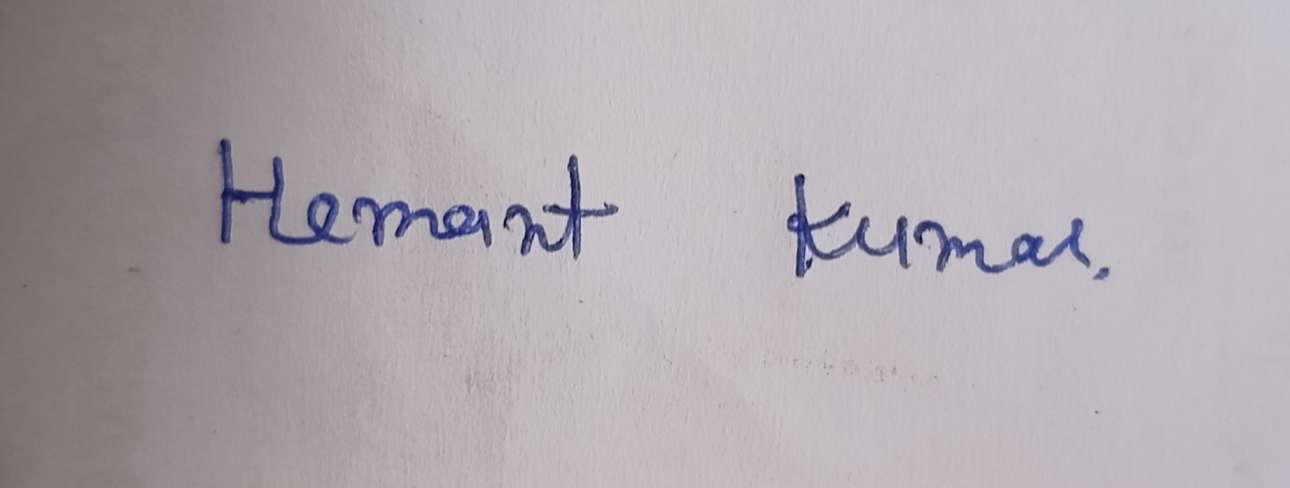 Hemant Kumar.